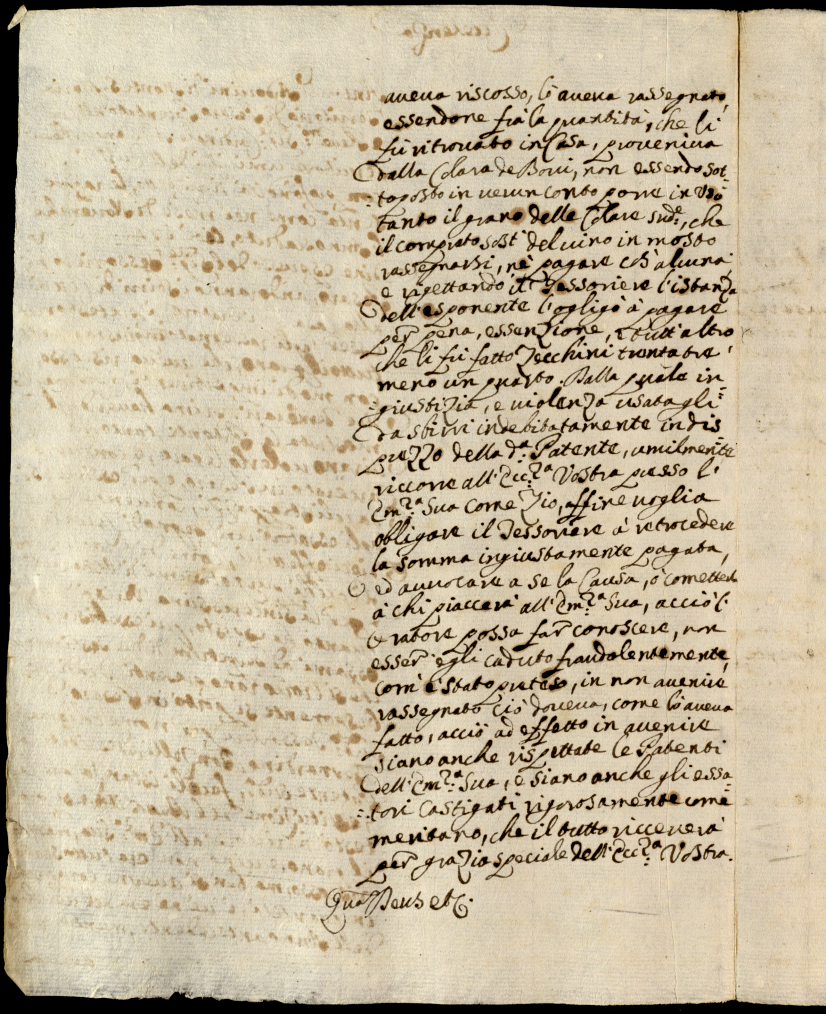 aveva riscosso, lo aveva rassegnato
essendone fra la quantità, che li
fù ritrovato in Casa, proveniva
dalla Colara de Bovi, non essendo sot-
toposto in verun conto porre in Uso
tanto il grano delle Colare sud.e, che
il comprato sost del vino in mosto
rassegnarsi, nè pagare cos'alcuna,
e rigettando il Tessoriere l'istanza
dell'esponente l'ogligò à pagare
per pena, essenzione, e tutt'altro
che li fù fatto Zecchini trentatre
meno un quarto. Dalla quale in-
=giustizia, e violenza usatagli
da sbirri indebitatamente in dis=
prezzo della d.a Patente, umilmente
riccorre all'Ecc.za Vostra presso l'
Em.za Sua come Zio, affine voglia
obligare il Tessoriere à retrocedere
la somma ingiustamente pagata,
ed avvocare a se la Causa, ò cometterla
à chi piaccerà all'Em.za Sua, acciò l'
Oratore possa far conoscere, non
esser egli caduto fraudolentemente,
com'è stato preteso, in non avenire
rassegnato ciò doveva, come lo aveva
fatto, acciò ad effetto in avenire
siano anche rispettate le Patenti
dell'Em.za Sua, e siano anche gli essa=
=tori castigati rigorosamente come
meritano, che il tutto riccevera
per grazia speciale dell'Ecc.za Vostra.
Quam Deus etc.